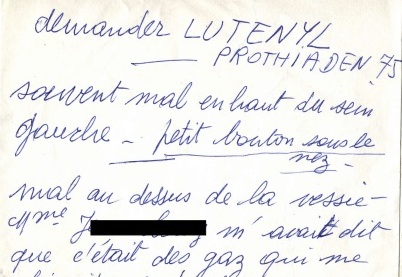 demander LUTENYL
PROTHIADEN 75
souvent mal en haut du sein
gauche - petit bouton sous le
nez -
mal au dessus de la vessie -
Mme J m'avait dit
que c'était des gaz qui me